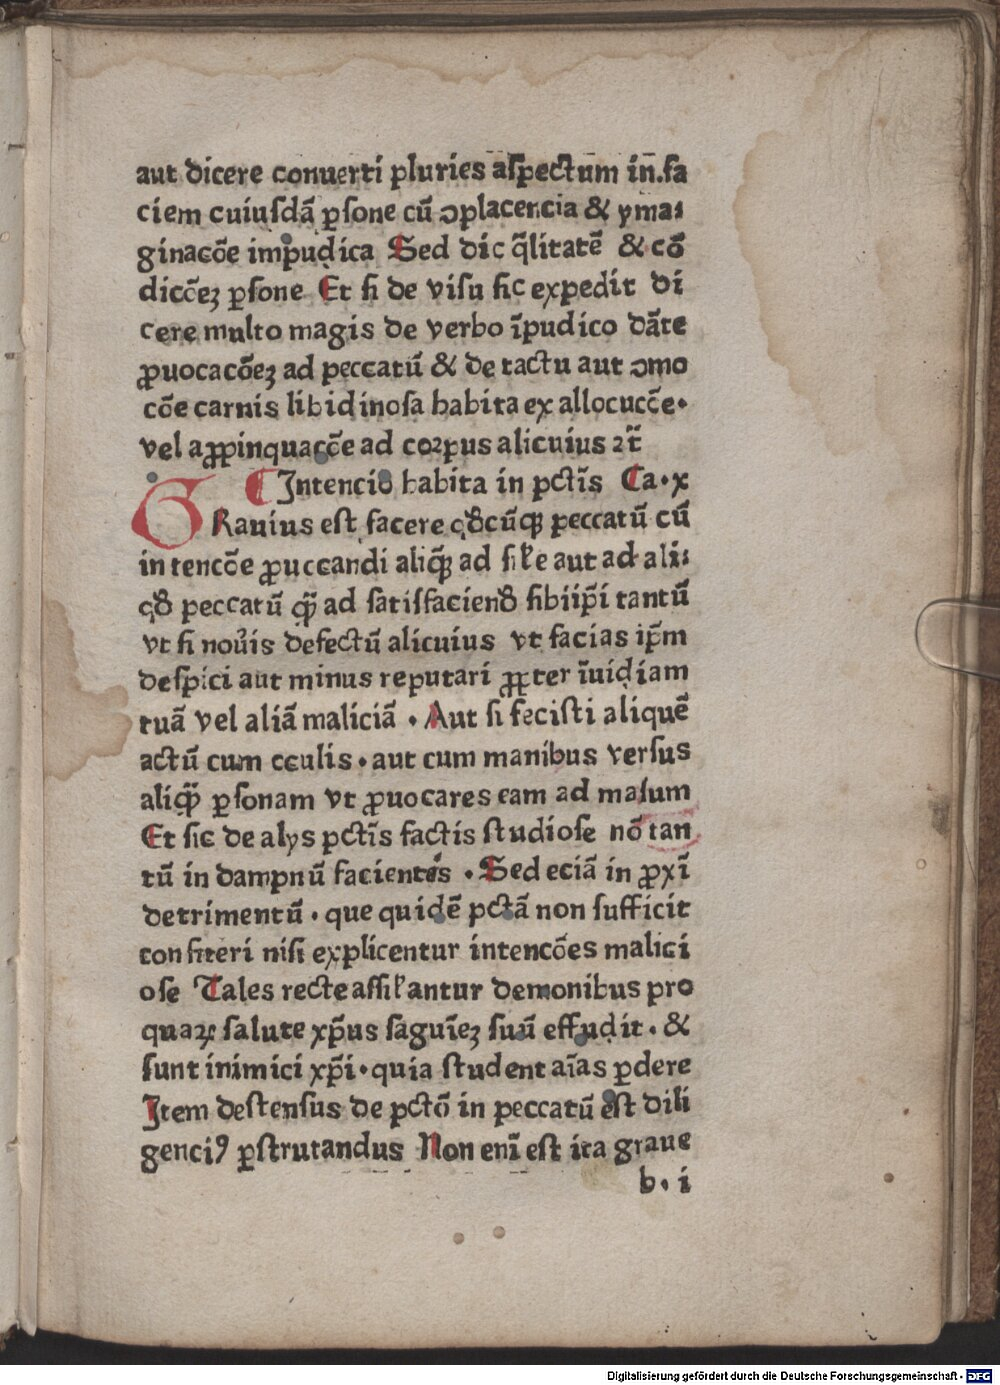 aut dicere conuerti pluries aſpectum in̄.fa
ciem cuiuſdā ꝑſone cū ꝯplacencia & yma⸗
ginacōe imꝑudica Sed dic q̄litatē & cō
diccēꝫ ꝑſone Et ſi de viſu ſic expedit di
cere multo magis de verbo īpudico dāte
ꝓuocacōeꝫ ad peccatū & de tactu aut ꝯmo
cōe carnis libidinoſa habita ex allocuccē·
vel aꝓpinquaccē ad coꝛpus alicuius ꝛc̄
Intencio habita in pctīs Ca·x
GRauius est facere qđcūqꝫ peccatū cū
intencōe ꝓuccandi aliqꝫ ad ſiłe aut ad ali⸗
qđ peccatū qꝫ̄ ad ſatiſfaciendꝰ ſibiip̄i tantū
vt ſi nou̓is defectū alicuius vt facias ip̄m
deſpici aut minus reputari ꝓꝑter īuidiam
tuā vel aliā maliciā · Aut ſi feciſti aliquē
actū cum cculis · aut cum manibus verſus
aliqꝫ̄ ꝑſonam vt ꝓuocares eam ad malum
Et ſic de alys pctīs factis ſtudioſe nō tan
tū in dampnū facientes · Sed eciā in ꝓxī
detrimentū · que quidē pctā non ſufficit
confiteri niſi explicentur intencōes malici
oſe Tales recte aſſiłantur demonibus pro
quaꝝ ſalute xp̄us ſaguīeꝫ ſuū effudit · &
ſunt inimici xp̄i · quia ſtudent aīas ꝑdere
Item deſtenſus de pctō in peccatū est dili
genciꝰ ꝑſtrutandus Non enī eſt ita graue
b · i
Digitalisierung gefördert durch die Deutsche Forschungsgemeinschaft - DFG